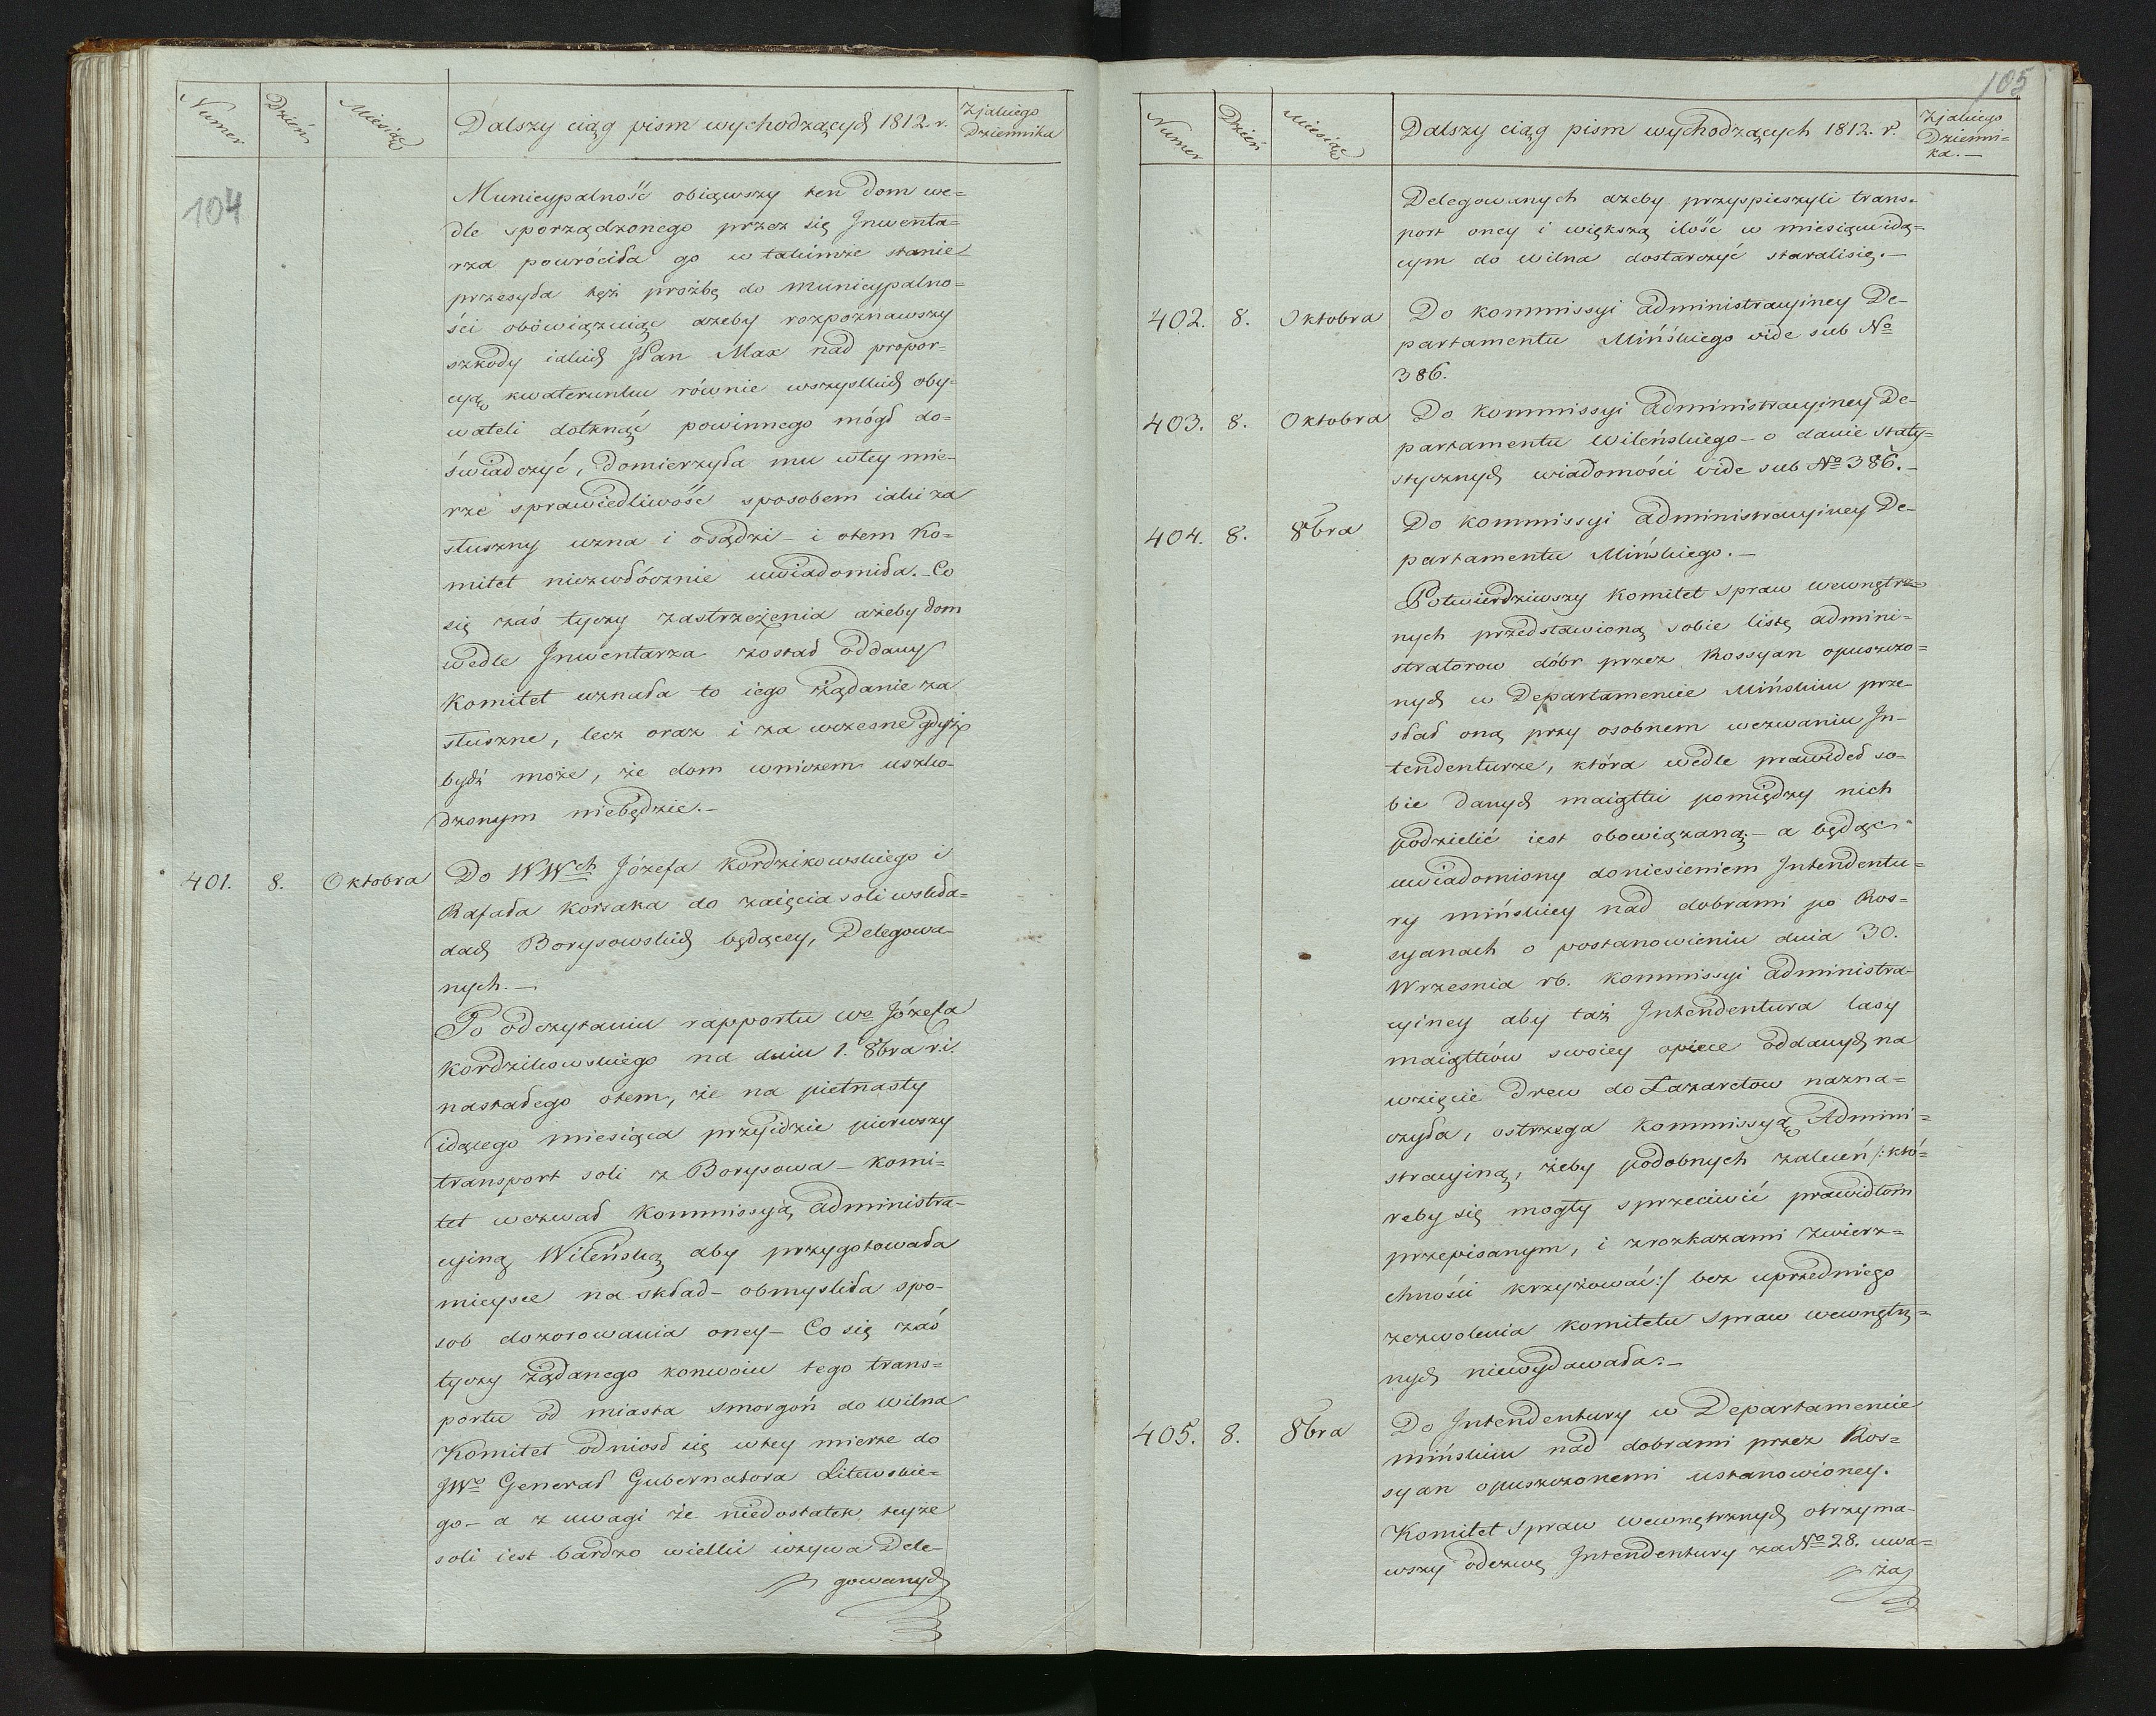 Numer
Dzień
Miesiąc
Dalszy ciąg pism wychodzących 1812. r.
Zjakiego
Dziennika
104
Municypalność obiąwszy ten Dom we=
dle sporządzonego przez się Inwenta=
rza powróciła go w takimże stanie
przesyła tęż prożbę do municypalno=
ści obówiązuiąc ażeby rozpoznawszy
szkody iakich JPan Max nad propor=
cyą kwaterunku równie wszystkich oby=
wateli dotknąć powinnego mógł do=
świadczyć, Domierzyła mu wtey mie=
rze sprawiedliwość sposobem iaki za
słuszny uzna i osądzi - i otem Ko=
mitet niezwłócznie uwiadomiła. - Co
się zaś tyczy zastrzeżenia ażeby dom
wedle Inwentarza został oddany
Komitet uznała to iego żądanie za
słuszne, lecz oraz i za wczesne gdyż
bydź może, że dom wniczem uszko-
dzonym niebędzie. -
401. 8. Oktobra Do WWch Józefa Kordzikowskiego i
Rafała Korsaka do zaięcia soli wskła=
dach Borysowskich będącey, Delegowa-
nych. -
Po odczytaniu rapportu Wo Józefa
Kordzikowskiego na dniu 1. 8bra r.i.
nastałego otem, że na pietnasty
idącego miesiąca przyidzie pierwszy
transport soli z Borysowa - Komi=
tet wezwał Kommissyą Administra-
cyiną Wileńską aby przygotowała
mieysce na skład - obmysliła spo-
sob dozorowania oney - Co się zaś
tyczy żądanego konwoiu tego trans=
portu od miasta Smorgoń do Wilna
Komitet odniosł się wtey mierze do
JWo Generał Gubernatora Litewskie=
go - a z uwagi że niedostatek teyże
soli iest bardzo wielki wzywa Dele-
gowanych
105
Numer
Dzień
Miesiąc
Dalszy ciąg pism wychodzących 1812. r.
Zjakiego
Dzienni=
ka. -
Delegowanych ażeby przyspieszyli trans=
port oney i większą ilość w miesiącu idą=
cym do Wilna dostarczyć staralisię. -
402. 8. Oktobra Do Kommissyi Administracyiney De-
partamentu Mińskiego vide sub No
386.
403. 8. Oktobra Do Kommissyi Administracyiney De-
partamentu Wileńskiego - o danie staty=
stycznych wiadomości vide sub No 386. -
404. 8. 8bra Do Kommissyi Administracyiney De-
partamentu Mińskiego. -
Potwierdziwszy Komitet Spraw wewnętrz=
nych przedstawioną sobie listę admini=
stratorow dóbr przez Rossyan opuszczo=
nych w Departamencie Mińskim prze-
słał oną przy osobnem wezwaniu In-
tendenturze, która wedle prawideł so=
bie danych maiątki pomiędzy nich
podzielić iest obowiązaną; - a będąc
uwiadomiony doniesieniem Intendentu=
ry mińskiey nad dobrami po Ros=
syanach o postanowieniu dnia 30.
Wrzesnia rb. Kommissyi Administra-
cyiney aby taż Intendentura lasy
maiątków swoiey opiece oddanych na
wzięcie Drew do Lazaretow nazna=
czyła, ostrzega Kommissyą Admini=
stracyiną, żeby podobnych zaleceń /: któ=
reby się mogły sprzeciwić prawidłom
przepisanym, i zrozkazami zwierz=
chności krzyżować :/ bez uprzedniego
zezwolenia Komitetu Spraw wewnętrz=
nych niewydawała. -
405. 8. 8bra Do Intendentury w Departamencie
mińskim nad dobrami przez Ros=
syan opuszczonemi ustanowioney.
Komitet Spraw wewnętrznych otrzyma-
wszy odezwę Intendentury za No 28. uwa=
ża